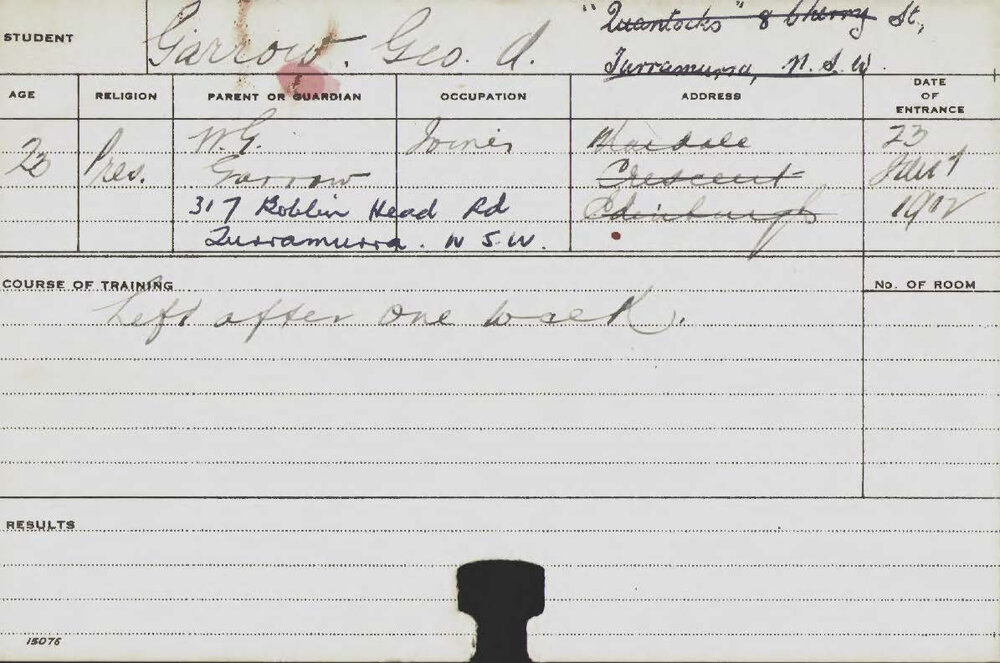 "Quantocks" 8 Cherry St,
STUDENT Garrow, Geo. A.
Turramurra, N.S.W.
AGE RELIGION PARENT OR GUARDIAN OCCUPATION ADDRESS DATE OF ENTRANCE
W.G. Joiner 23
23 Pres. Garrow Crescent
317 Bobbin Head Rd Edinburgh
Turramurra. N S.W.
COURSE OF TRAINING No. OF ROOM
Left after one week.
RESULTS
15076